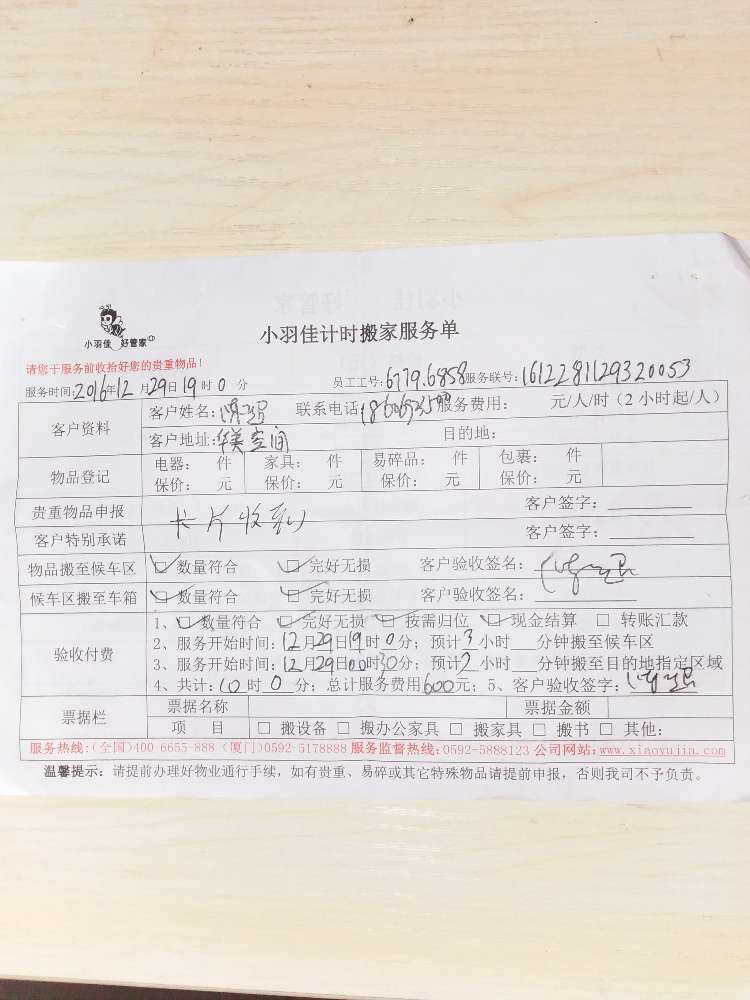 小羽佳 好管家
小羽佳计时搬家服务单
请您于服务前收拾好您的贵重物品!
服务时间:2016年12月29日19时0分 员工工号:6779.6858 服务联号:1612281129320053
客户资料
客户姓名: 联系电话: 服务费用: 元/人/时(2小时起/人)
客户地址:华美空间 目的地:
物品登记
电器: 件 家具: 件 易碎品: 件 包裹: 件
保价: 元 保价: 元 保价: 元 保价: 元
贵重物品申报 客户签字:
卡片收到
客户特别承诺 客户签字:
物品搬至候车区 数量符合 完好无损 客户验收签名:
候车区搬至车箱 数量符合 完好无损 客户验收签名:
验收付费
1、数量符合 完好无损 按需归位 现金结算 转账汇款
2、服务开始时间:12月29日19时0分;预计3小时 分钟搬至候车区
3、服务开始时间:12月29日00时30分;预计2小时 分钟搬至目的地指定区域
4、共计:10时0分;总计服务费用600元;5、客户验收签字:
票据栏
票据名称 票据金额
项 目 搬设备 搬办公家具 搬家具 搬书 其他:
服务热线:(全国)400-6655-888 (厦门)0592-5178888 服务监督热线:0592-5888123 公司网站:www.xiaoyujia.com
温馨提示:请提前办理好物业通行手续,如有贵重、易碎或其它特殊物品请提前申报,否则我司不予负责。